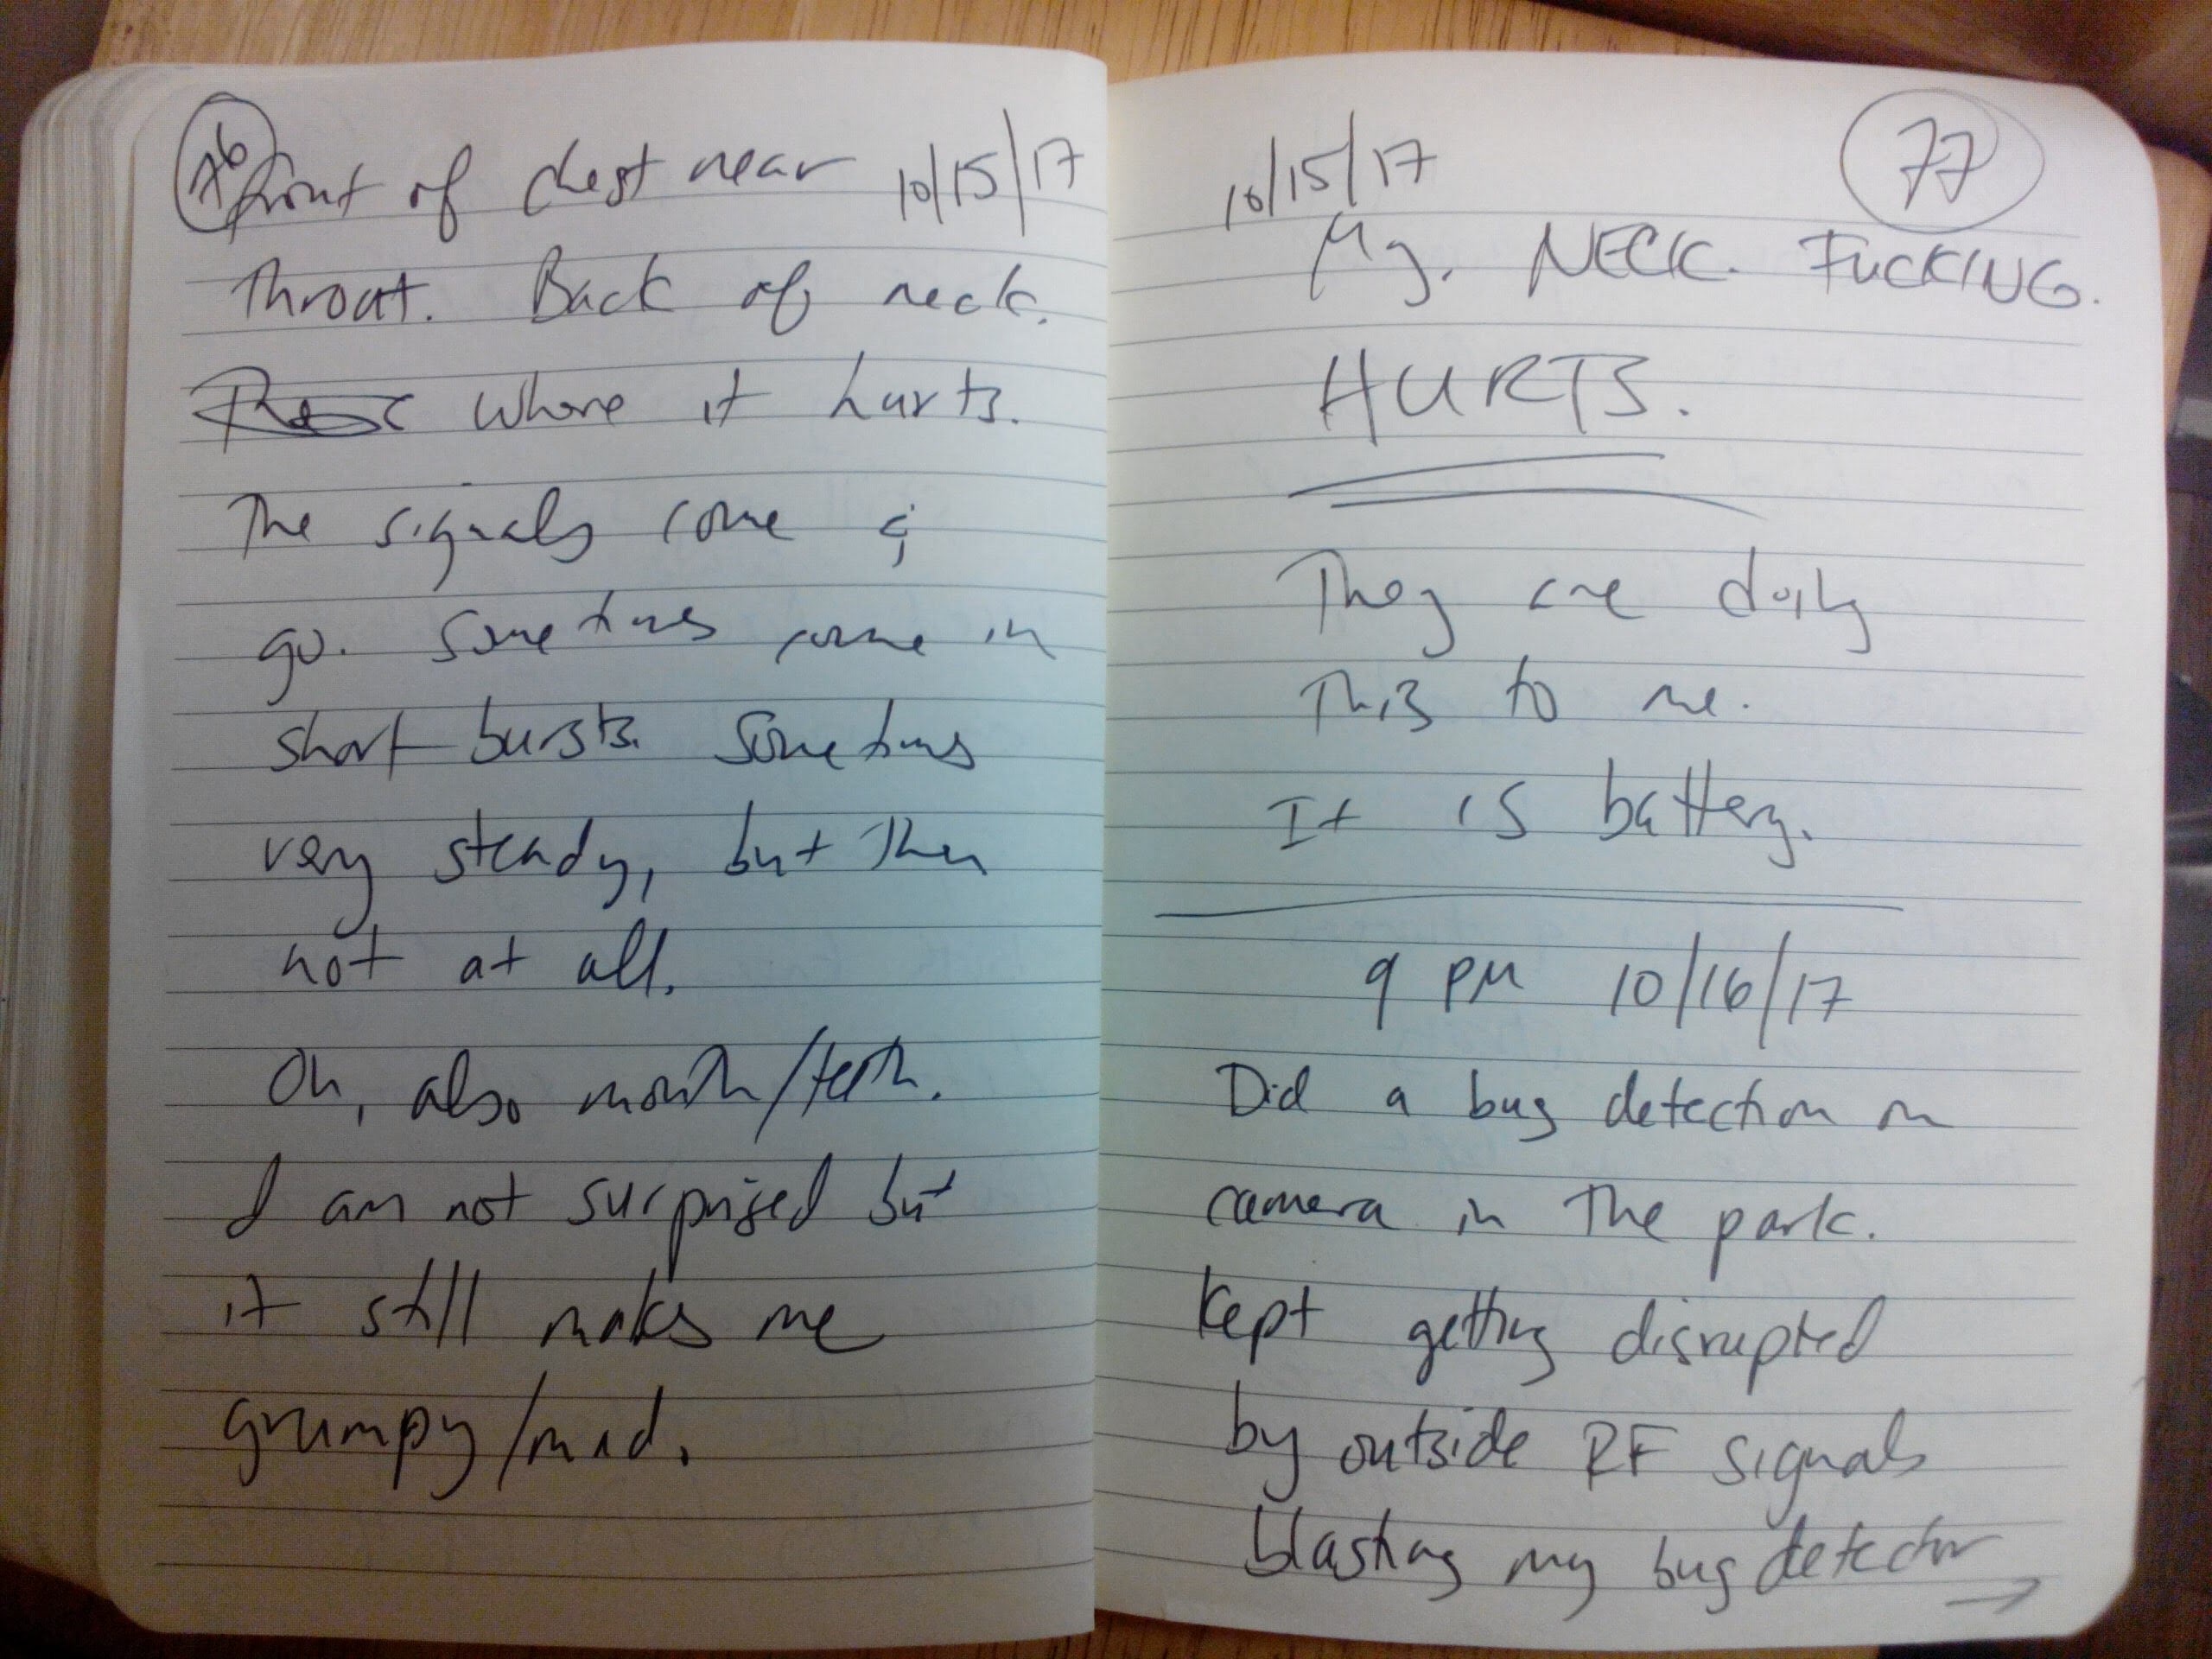 76
front of chest near 10/15/17
throat. Back of neck.
where it hurts.
The signals come &
go. Sometimes come in
short bursts. Sometimes
very steady, but then
not at all.
Oh, also mouth/teeth.
I am not surprised but
it still makes me
grumpy/mad.
10/15/17 77
My. NECK. FUCKING.
HURTS.
They are doing
this to me.
It is battery.
9 PM 10/16/17
Did a bug detection on
camera in the park.
Kept getting disrupted
by outside RF signals
blasting my bug detector
→